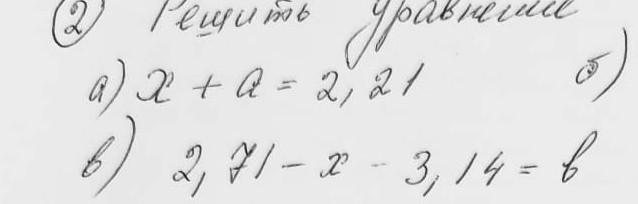 ② Решить уравнение
а) x + a = 2,21 б)
в) 2,71 - x - 3,14 = b